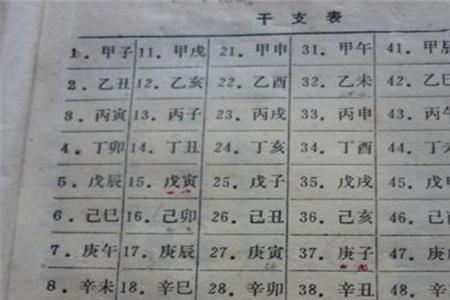 干支表
1．甲子 11．甲戌 21．甲申 31．甲午 41．甲辰
2．乙丑 12．乙亥 22．乙酉 32．乙未 42．乙巳
3．丙寅 13．丙子 23．丙戌 33．丙申 43．丙午
4．丁卯 14．丁丑 24．丁亥 34．丁酉 44．丁未
5．戊辰 15．戊寅 25．戊子 35．戊戌 45．戊
6．己巳 16．己卯 26．己丑 36．己亥 46．己
7．庚午 17．庚辰 27．庚寅 37．庚子 47．庚
8．辛未 18．辛巳 28．辛卯 38．辛丑 48．辛